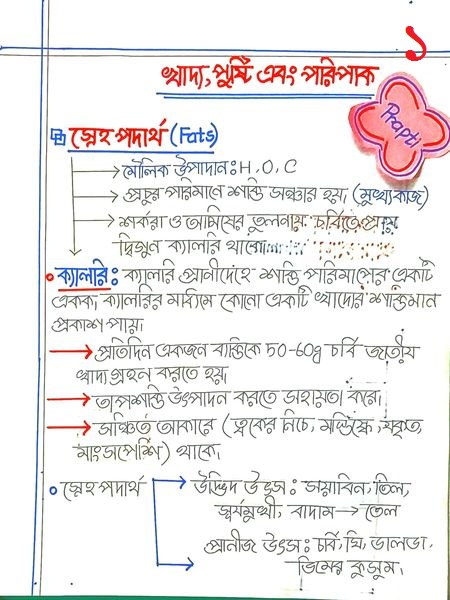 ১
খাদ্য, পুষ্টি এবং পরিপাক
Prapti
স্নেহ পদার্থ (Fats)
মৌলিক উপাদান: H, O, C
প্রচুর পরিমাণে শক্তি সঞ্চার হয়। (মুখ্যকাজ)
শর্করা ও আমিষের তুলনায় চর্বিতে প্রায়
দ্বিগুন ক্যালরি থাকে।
ক্যালরি: ক্যালরি প্রানীদেহে শক্তি পরিমাপের একটি
একক। ক্যালরির মাধ্যমে কোনো একটি খাদ্যের শক্তিমান
প্রকাশ পায়।
প্রতিদিন একজন ব্যক্তিকে 50-60g চর্বি জাতীয়
খাদ্য গ্রহন করতে হয়।
তাপশক্তি উৎপাদন করতে সহায়তা করে।
সঞ্চিত আকারে (ত্বকের নিচে, মস্তিষ্কে, যকৃত,
মাংসপেশি) থাকে।
স্নেহ পদার্থ
উদ্ভিদ উৎস: সয়াবিন, তিল,
সূর্যমুখী, বাদাম → তেল
প্রানীজ উৎস: চর্বি, ঘি, ডালডা,
ডিমের কুসুম।